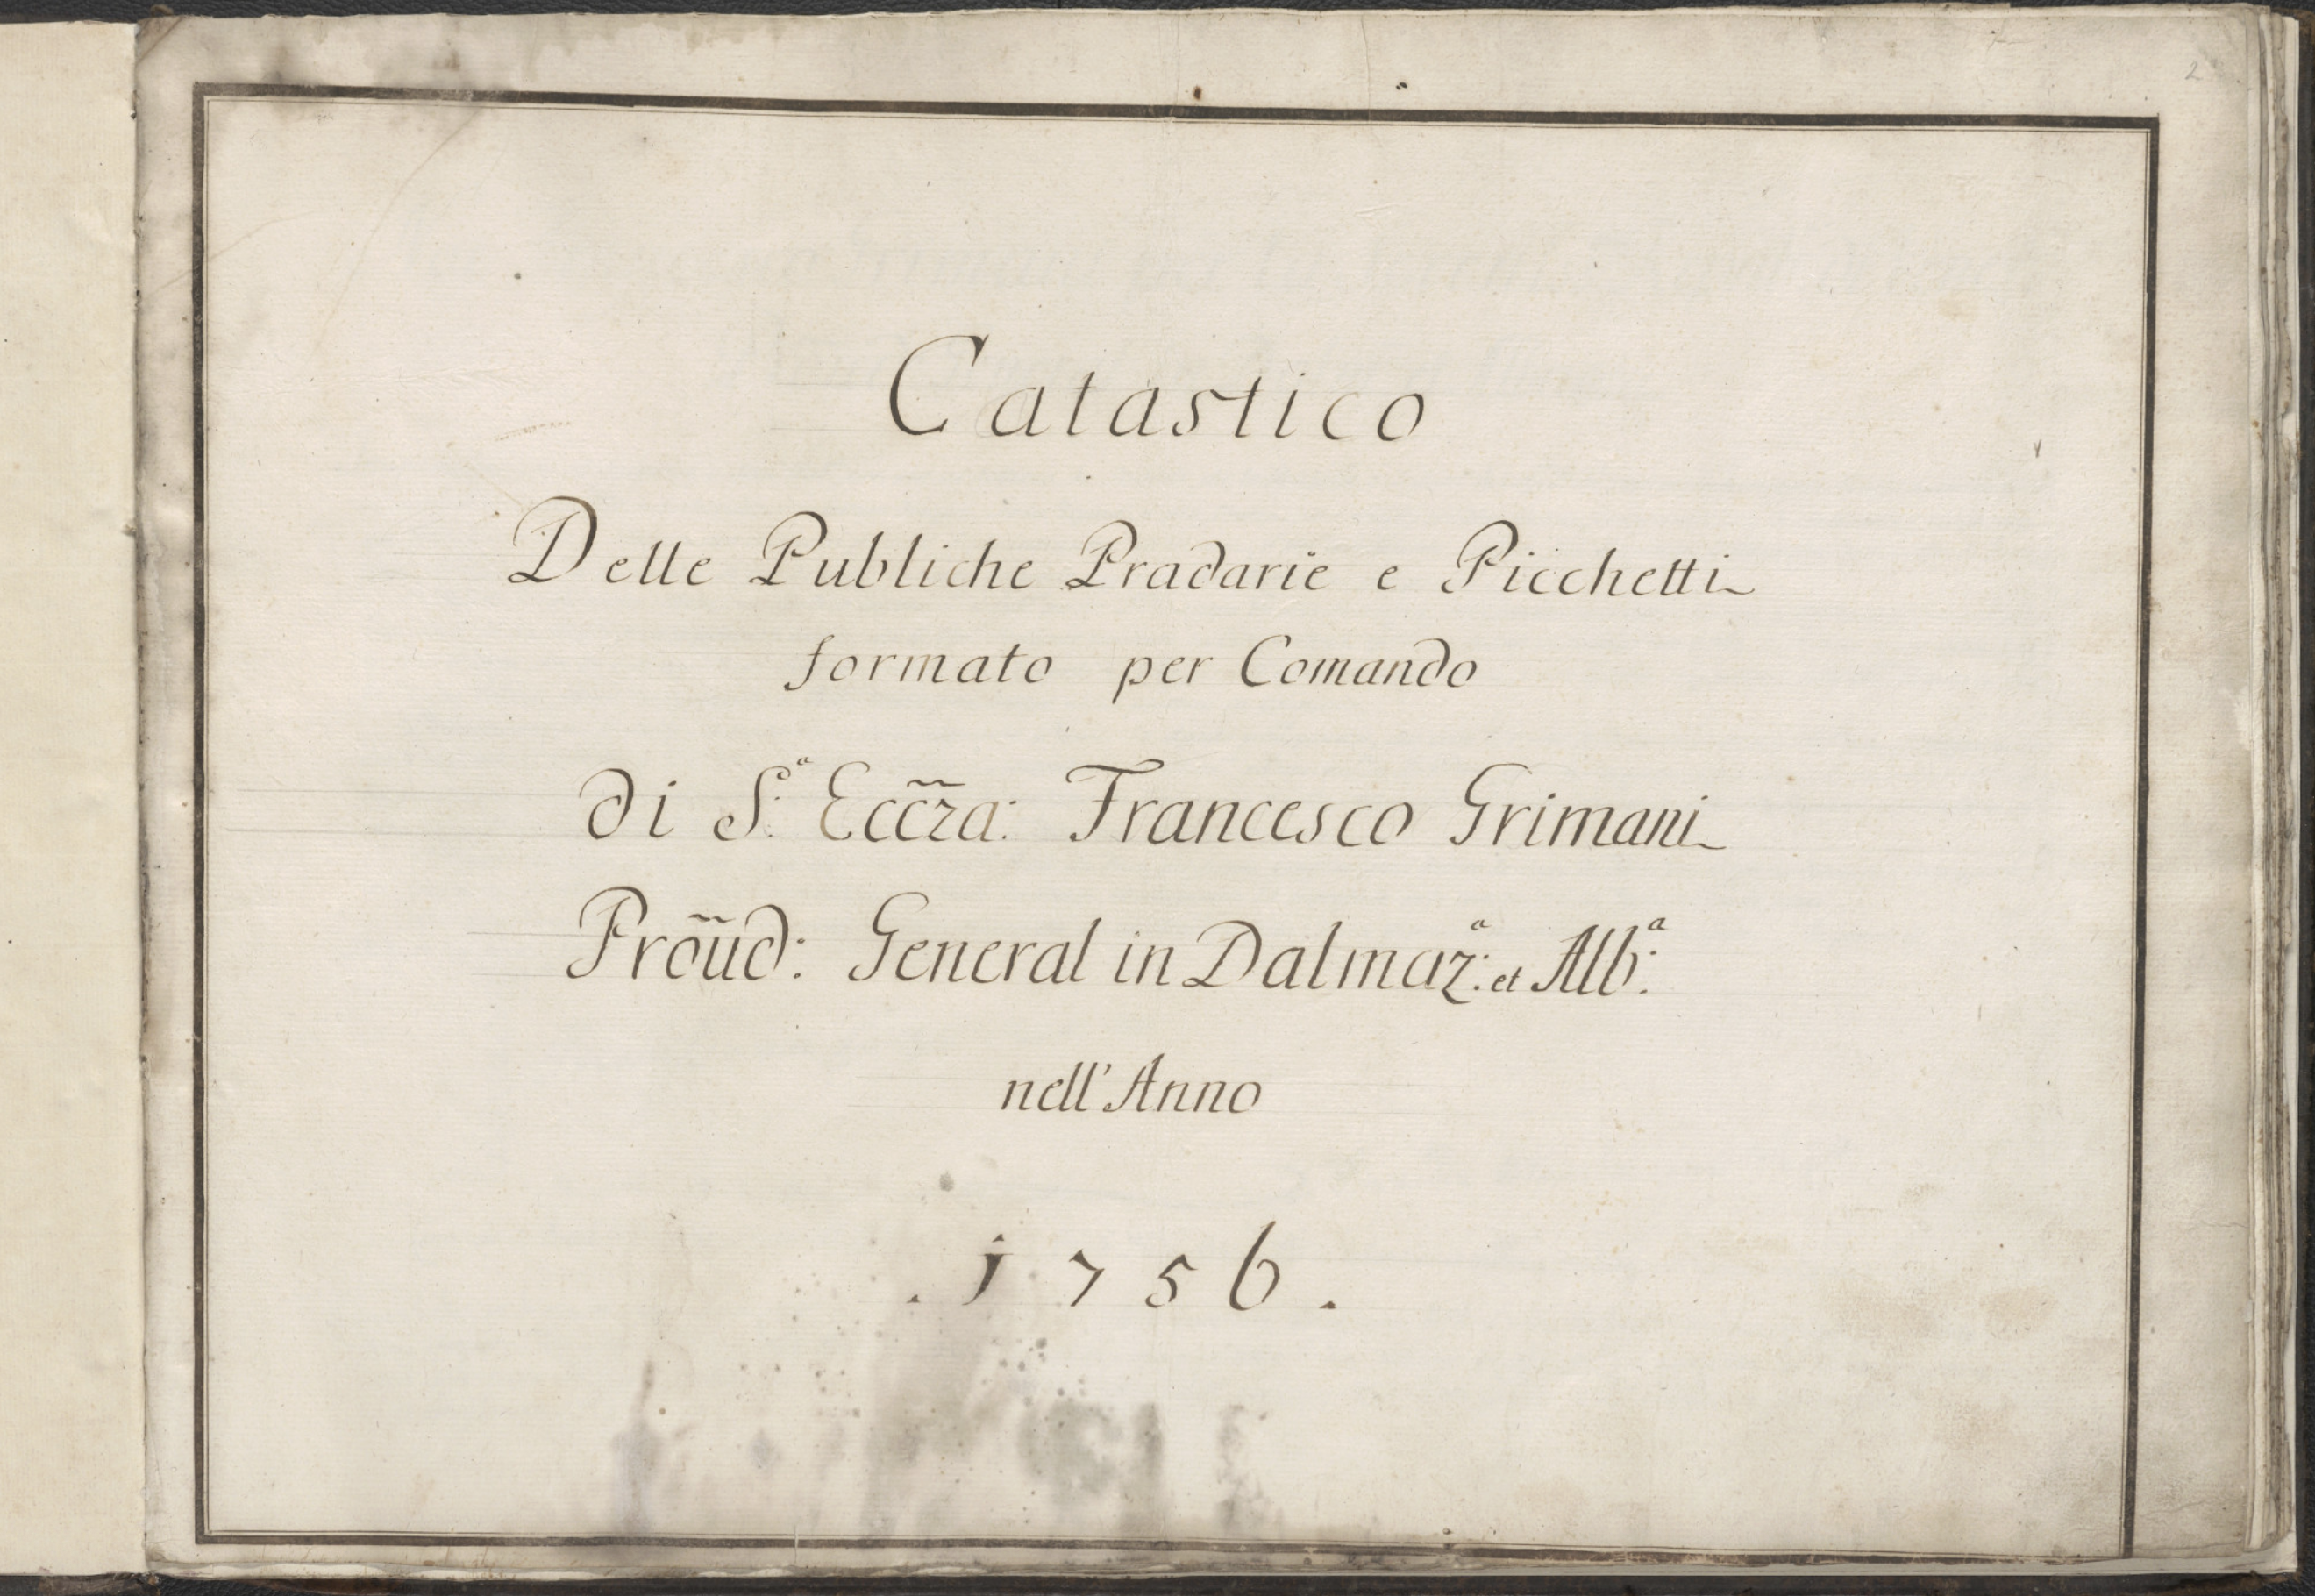 2
Catastico
Delle Publiche Pradarie e Picchetti
formato per Comando
di S.ª Ecc̃za: Francesco Grimani
Prõud: General in Dalmaz:ª et Alb:ª
nell' Anno
. 1756 .